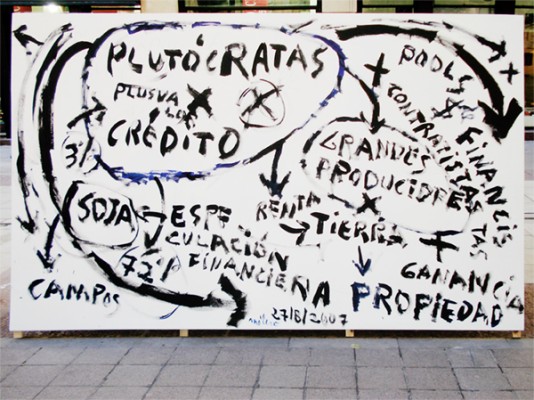 PLUTÓCRATAS
PLUSVA
LOR
CRÉDITO
POOLS
CONTRATISTAS
FINANCIS
TAS
GRANDES
PRODUCTORES
3%
SOJA
ESPE
CULACIÓN
FINANCIERA
72%
CAMPOS
RENTA
TIERRA
GANANCIA
PROPIEDAD
27/8/2007